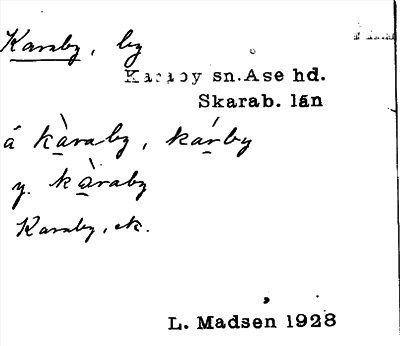 Karaby, by
Karaby sn. Ase hd.
Skarab. län
á kàraby, kárby
y. kàraby
Karaby, ek.
L. Madsen 1928